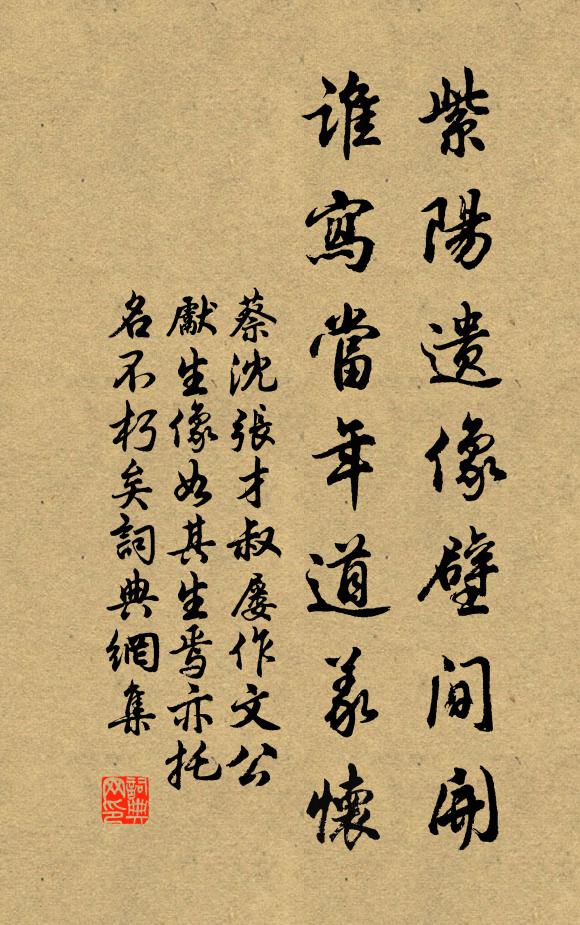 紫陽遺像壁間開
誰寫當年道義懷
蔡沈張才叔屡作文公
獻生像如其生焉亦托
名不朽矣詞典網集
詞典网印